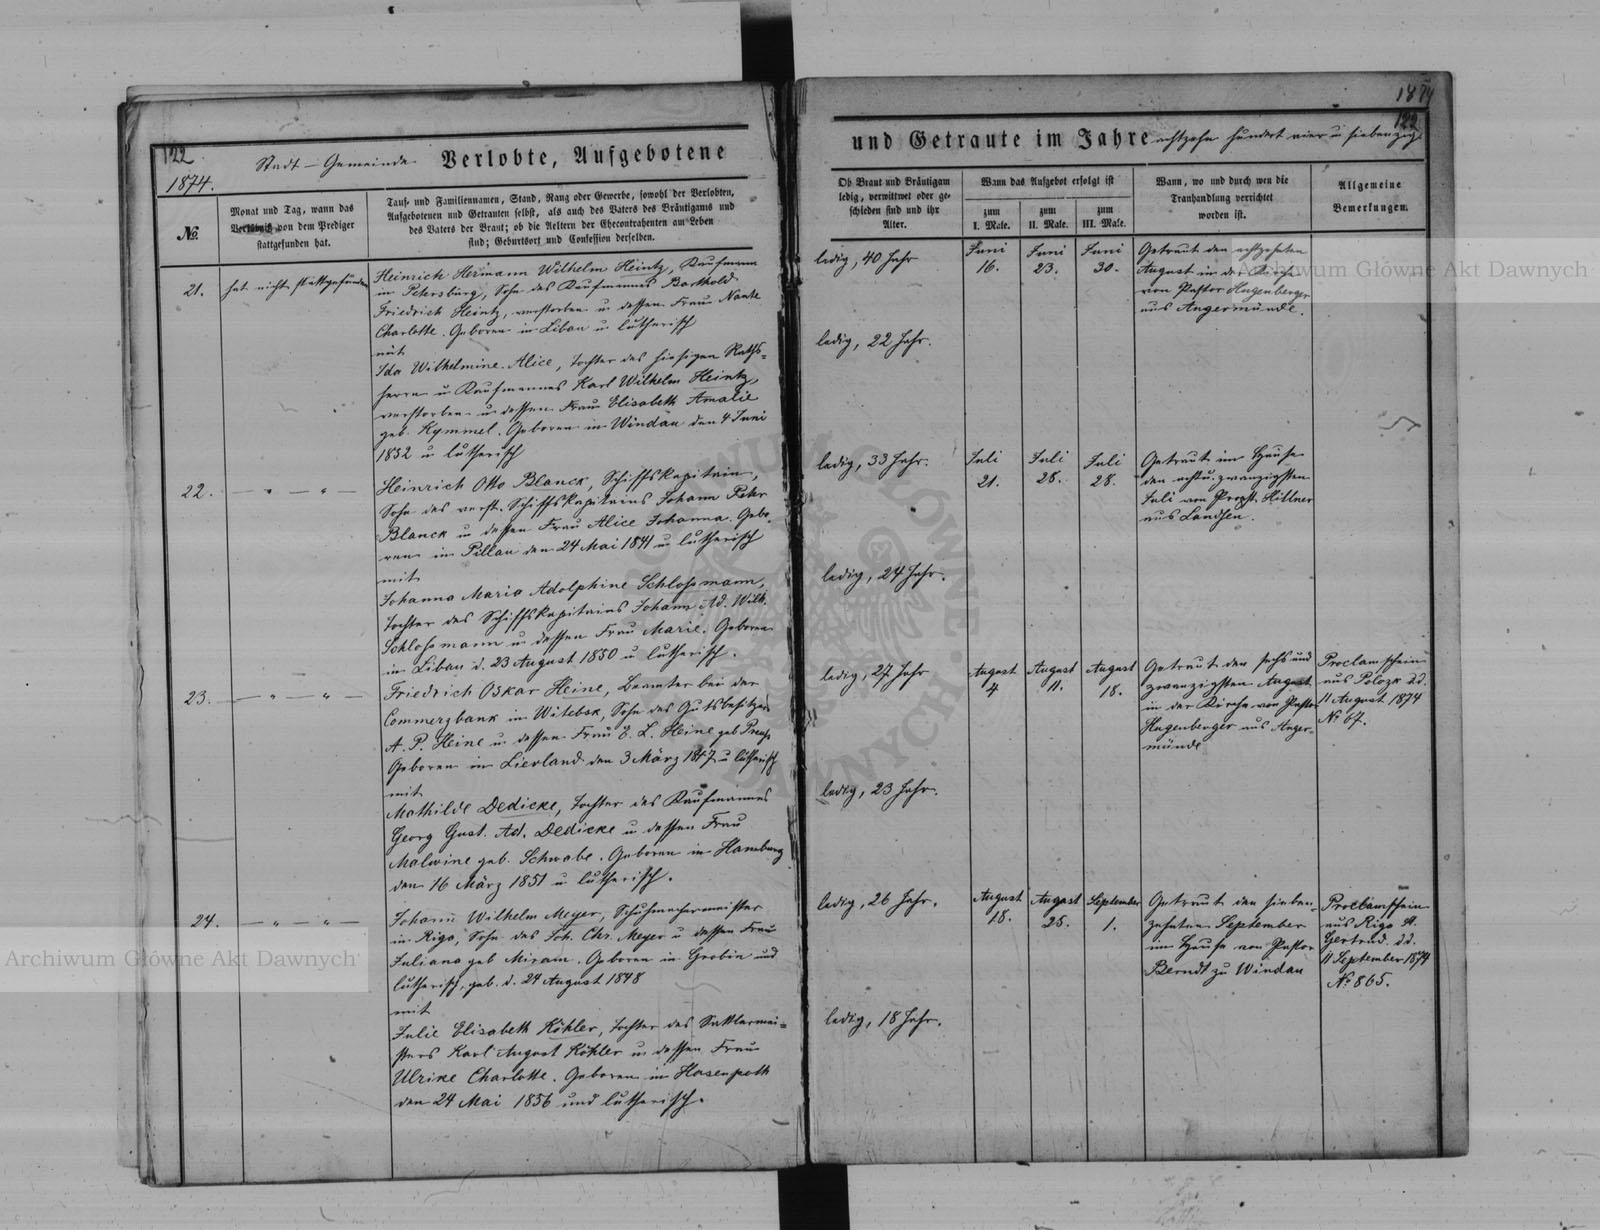 122
1874.
Stadt-Gemeinde Verlobte, Aufgebotene
No.
Monat und Tag, wann das
Verlöbniß von dem Prediger
stattgefunden hat.
Tauf- und Familiennamen, Stand, Rang oder Gewerbe, sowohl der Verlobten,
Aufgebotenen und Getrauten selbst, als auch des Vaters des Bräutigams und
des Vaters der Braut; ob die Aeltern der Ehecontrahenten am Leben
sind; Geburtsort und Confession derselben.
21.
hat nicht stattgefunden
Heinrich Hermann Wilhelm Heintz, Kaufmann
in Petersburg, Sohn des Kaufmannes Barthold
Friedrich Heintz, verstorben u dessen Frau
Charlotte. Geboren in Libau u lutherisch
mit
Ida Wilhelmine Alice, Tochter des hiesigen Raths-
herrn u Kaufmannes Karl Wilhelm Heintz,
verstorben u dessen Frau Elisabeth Amalie
geb. Kymmel. Geboren in Windau den 4 Juni
1852 u lutherisch
22. — " — " —
Heinrich Otto Blanck, Schiffskapitain,
Sohn des verst. Schiffskapitains Johann Pehr
Blanck u dessen Frau Alice Johanna. Gebo-
ren in Pillau den 24 Mai 1841 u lutherisch
mit
Johanna Maria Adolphine Schlossmann,
Tochter des Schiffskapitains Johann Ad. Wilh.
Schlossmann u dessen Frau Marie. Geboren
in Libau d. 23 August 1850 u lutherisch.
23. — " — " —
Friedrich Oskar Heine, Beamter bei der
Commerzbank in Witebsk, Sohn des Gutsbesitzers
A. P. Heine u dessen Frau E. L. Heine geb Preuss
Geboren in Lievland den 3 März 1847 u lutherisch
mit
Mathilde Dedicke, Tochter des Kaufmannes
Georg Gust. Ad. Dedicke u dessen Frau
Malwine geb. Schwabe. Geboren in Hamburg
den 16 März 1851 u lutherisch.
24. — " — " —
Johann Wilhelm Meyer, Schuhmachermeister
in Riga, Sohn des Joh. Chr. Meyer u dessen Frau
Juliana geb Miram. Geboren in Grobin und
lutherisch, geb. d. 24 August 1848
mit
Julie Elisabeth Köhler, Tochter des Sattlermei-
sters Karl August Köhler u dessen Frau
Ulrike Charlotte. Geboren in Hasenpoth
den 24 Mai 1856 und lutherisch.
1874
122
und Getraute im Jahre achtzehn hundert vier u siebenzig.
Ob Braut und Bräutigam
ledig, verwittwet oder ge-
schieden sind und ihr
Alter.
Wann das Aufgebot erfolgt ist
zum
I. Male.
zum
II. Male.
zum
III. Male.
Wann, wo und durch wen die
Trauhandlung verrichtet
worden ist.
Allgemeine
Bemerkungen.
ledig, 40 Jahr
Juni
16.
Juni
23.
Juni
30.
Getraut den achtzehnten
August in der Kirche
von Pastor Hugenberger
aus Angermünde.
ledig, 22 Jahr.
ledig, 33 Jahr.
Juli
21.
Juli
28.
Juli
28.
Getraut im Hause
den achtu.zwanzigsten
Juli von Propst Hillner
aus Landsen.
ledig, 24 Jahr.
ledig, 27 Jahr
August
4
August
11.
August
18.
Getraut den sechs und
zwanzigsten August
in der Kirche von Pastor
Hugenberger aus Anger-
münde
Proclamschein
aus Polozk d.d.
11 August 1874
No 67.
ledig, 23 Jahr.
ledig, 26 Jahr.
August
18.
August
25.
September
1.
Getraut den sieben-
zehnten September
im Hause von Pastor
Berndt zu Windau
Proclamschein
aus Riga St.
Gertrud. d.d.
11 September 1874
No 865.
ledig, 18 Jahr.
Archiwum Główne Akt Dawnych
Archiwum Główne Akt Dawnych
ARCHIWUM GŁÓWNE AKT DAWNYCH